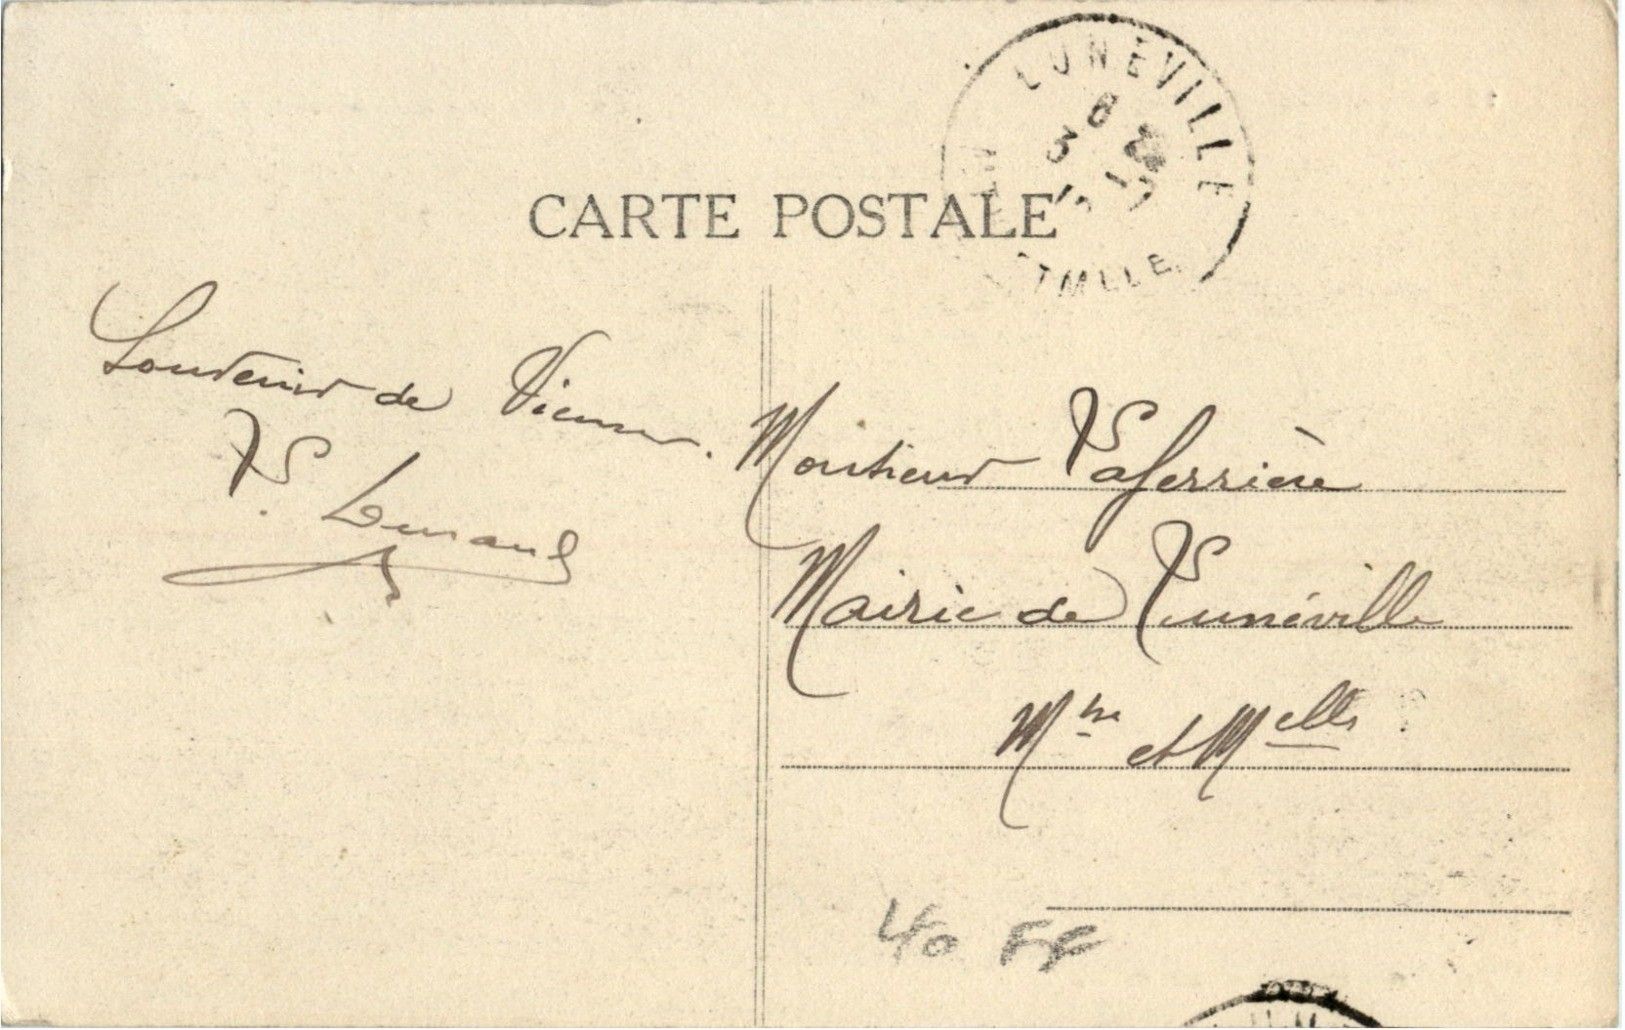 LUNÉVILLE
8
3
CARTE POSTALE
Souvenir de Vienne.
L.
Monsieur Laferrière
Mairie de Lunéville
Mme et Melles
40 FF